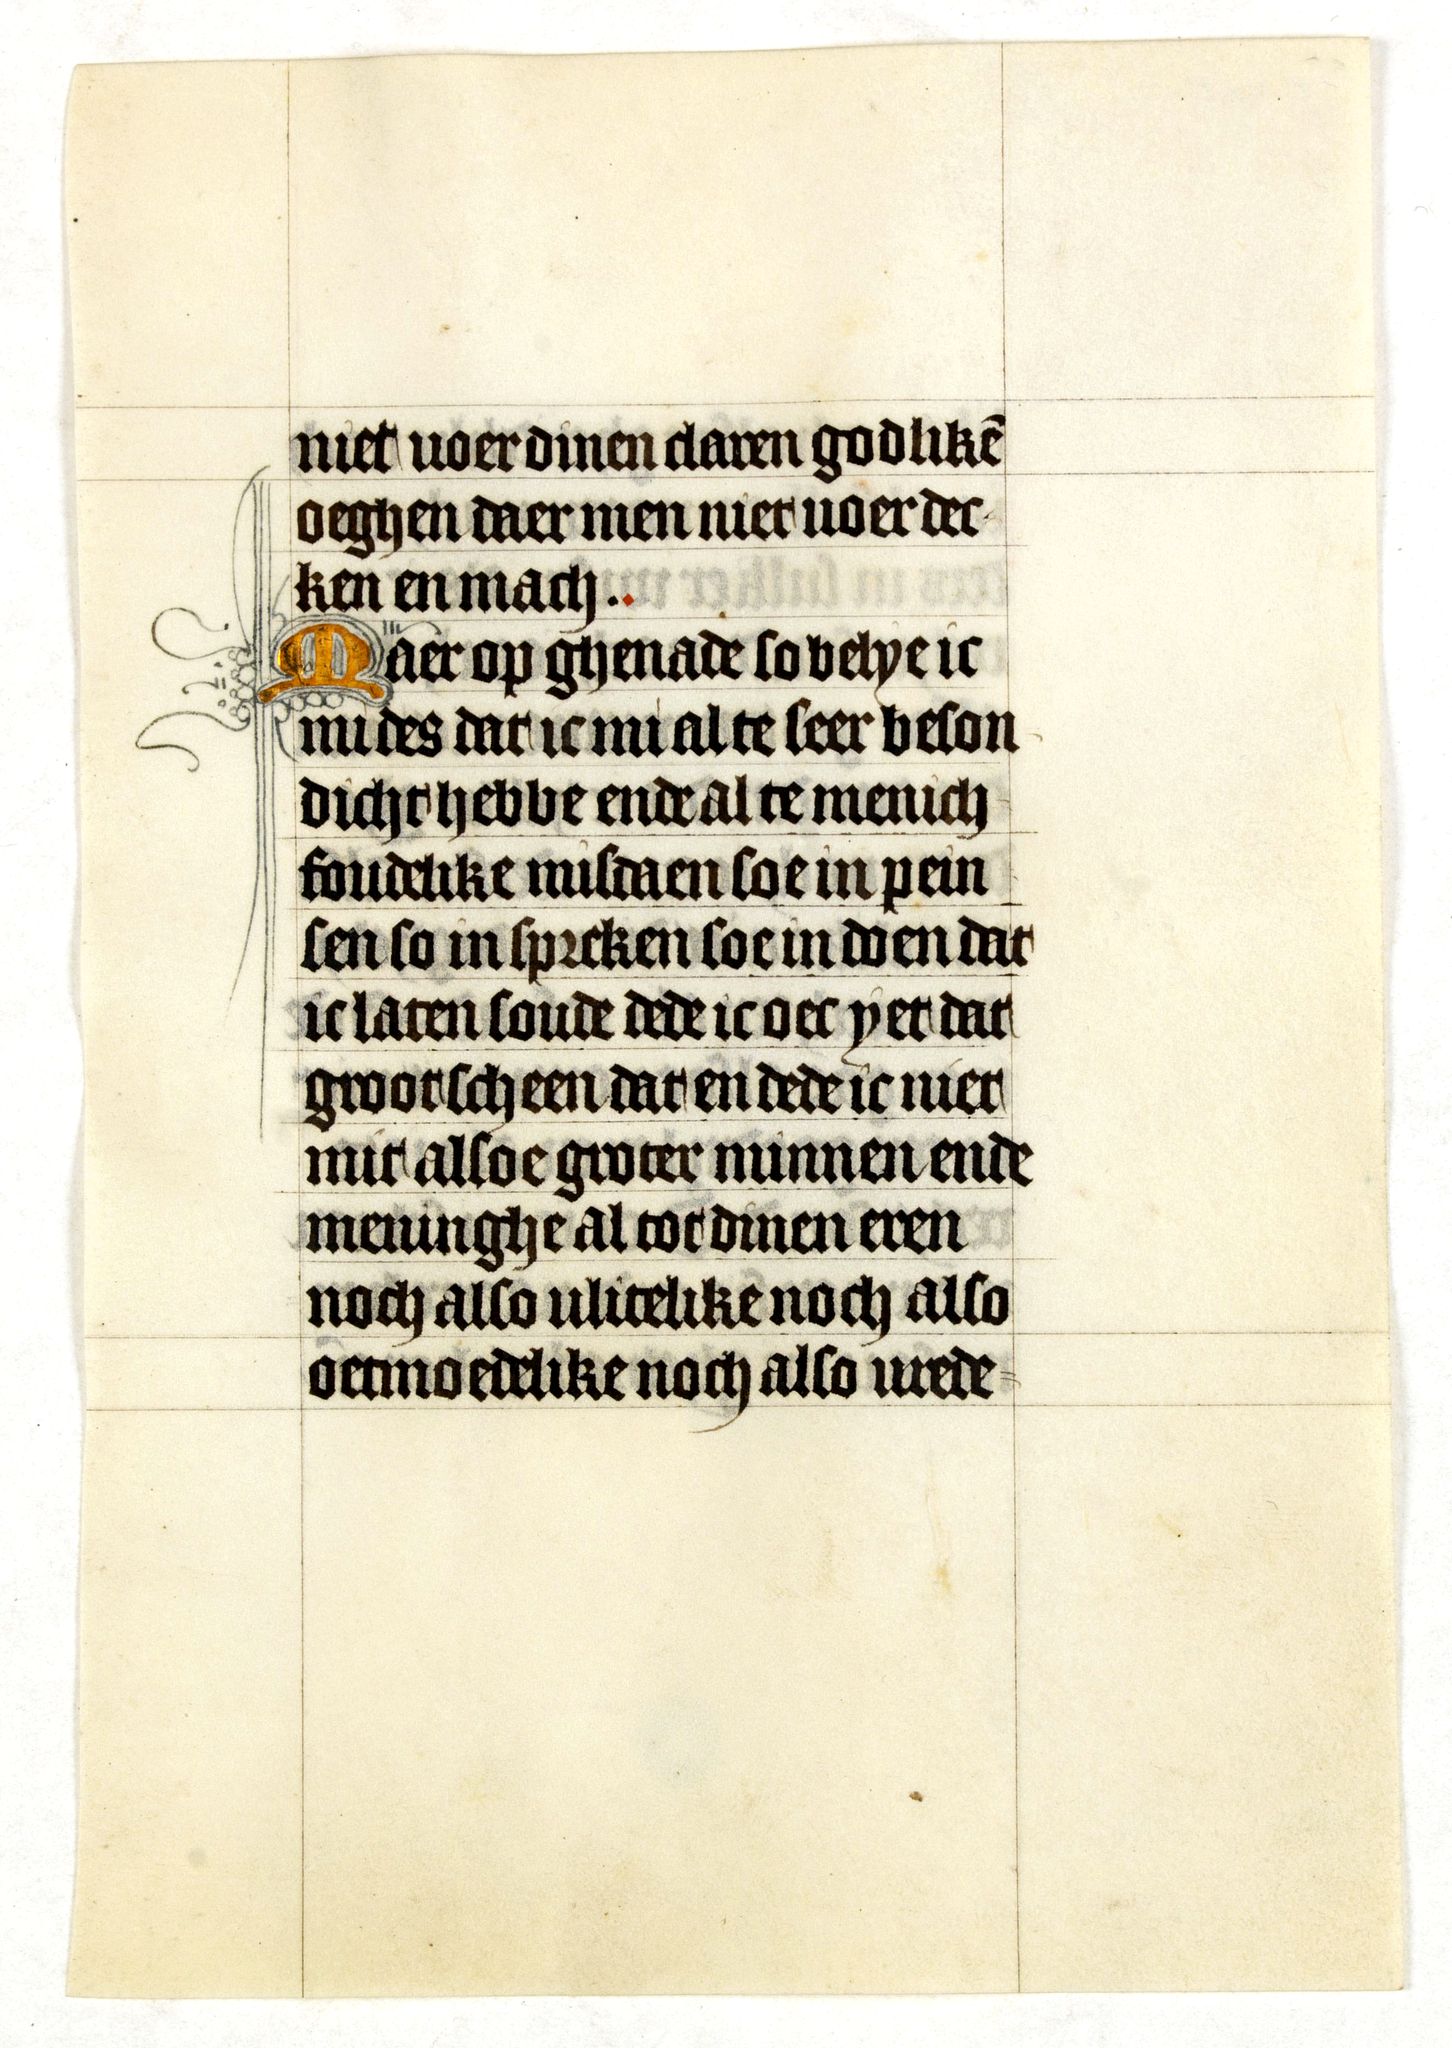 niet uoer dinen claren godlikē
oeghen daer men niet uoer dec-
ken en mach..
Maer op ghenade so belye ic
mi des dat ic mi al te seer beson
dicht hebbe ende al te menich
foudelike misdaen soe in pein
sen so in spreken soe in doen dat
ic laten soude dede ic oec yet dat
groot scheen dat en dede ic niet
mit alsoe groter minnen ende
meninghe al tot dinen eren
noch also ulitelike noch also
oetmoedelike noch also urede=